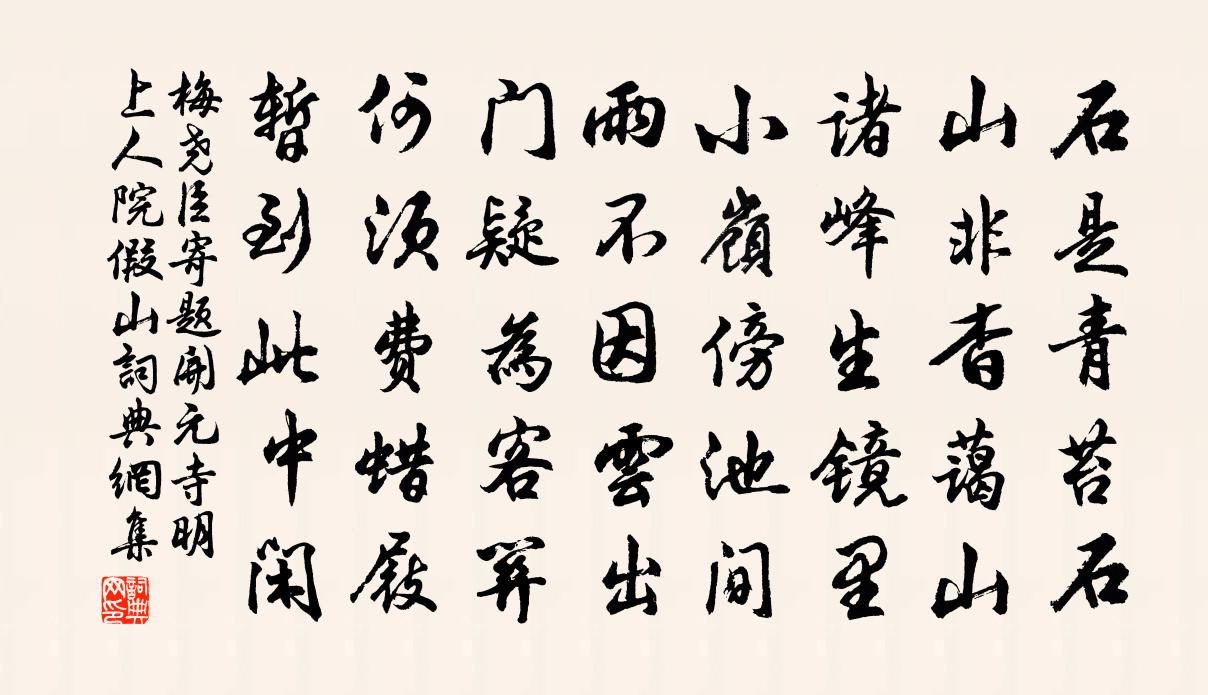 石是青苔石
山非杳藹山
诸峰生镜里
小嶺傍池间
雨不因雲出
门疑為客関
何须费蜡屐
暂到此中闲
梅尧臣寄题開元寺明
上人院假山詞典網集
詞典網印